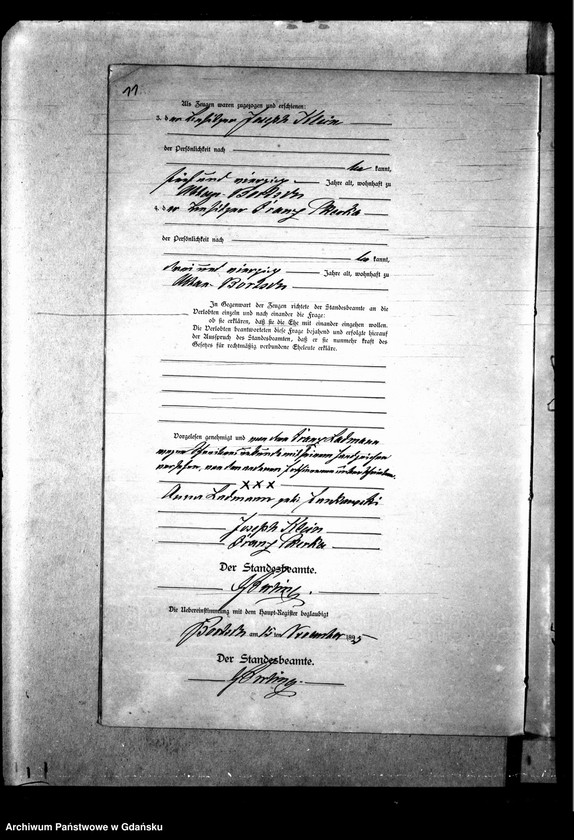 11.
Als Zeugen waren zugezogen und erschienen:
3. der Besitzer Joseph Klein
der Persönlichkeit nach
be kannt,
fünf und vierzig Jahre alt, wohnhaft zu
4. der Besitzer Franz
der Persönlichkeit nach
be kannt,
drei und vierzig Jahre alt, wohnhaft zu
In Gegenwart der Zeugen richtete der Standesbeamte an die
Verlobten einzeln und nach einander die Frage:
ob sie erklären, daß sie die Ehe mit einander eingehen wollen.
Die Verlobten beantworteten diese Frage bejahend und erfolgte hierauf
der Ausspruch des Standesbeamten, daß er sie nunmehr kraft des
Gesetzes für rechtmäßig verbundene Eheleute erkläre.
Vorgelesen, genehmigt und von dem Franz Ladmann
wegen Schreibensunkunde mit seinem Handzeichen
versehen, von den anderen unterschrieben.
X X X
Anna Ladmann geb.
Joseph Klein
Franz
Der Standesbeamte.
Die Uebereinstimmung mit dem Haupt-Register beglaubigt
am 15 ten November
Der Standesbeamte.
Archiwum Państwowe w Gdańsku